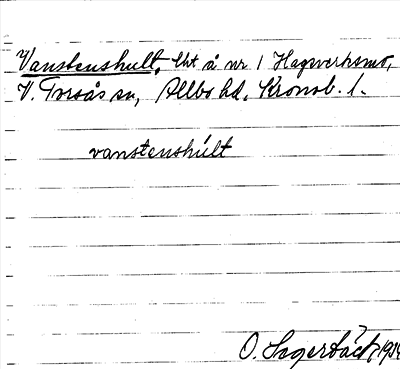 Vanstenshult, lht å nr 1 Hagsverksmo,
V. Torsås sn, Allbo hd, Kronob. l.
vanstenshúlt
O. Lagerbäck, 1934